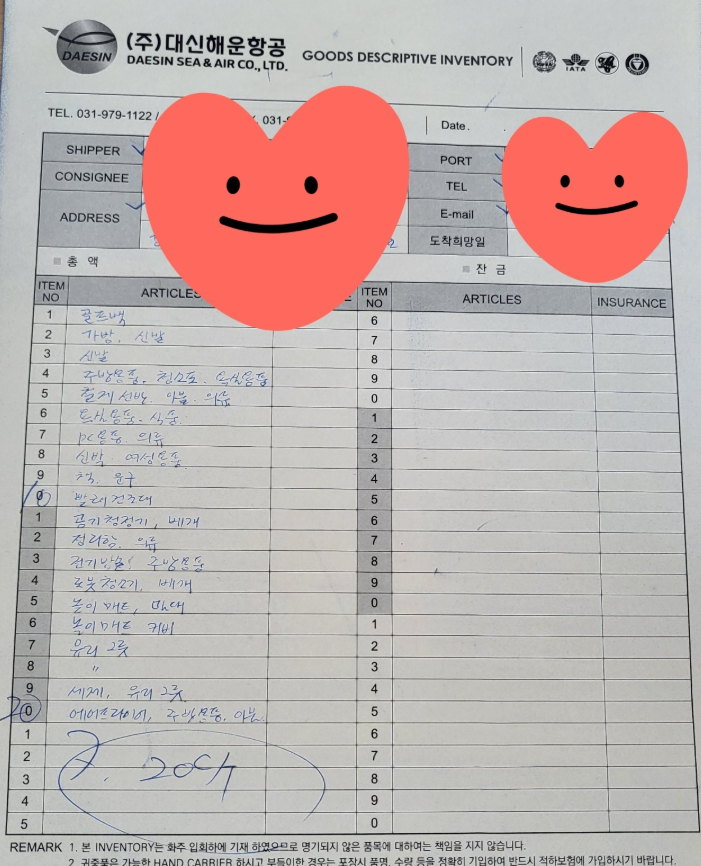 DAESIN
(주)대신해운항공
DAESIN SEA & AIR CO., LTD.
GOODS DESCRIPTIVE INVENTORY
IATA
TEL. 031-979-1122 /
031-
Date.
SHIPPER
PORT
CONSIGNEE
TEL
ADDRESS
E-mail
도착희망일
총 액
잔 금
ITEM NO ARTICLES ITEM NO ARTICLES INSURANCE
1 골프백 6
2 가방, 신발 7
3 신발 8
4 주방용품, 청소포, 욕실용품 9
5 철제선반, 이불, 의류 0
6 욕실용품, 식품. 1
7 pc용품, 의류 2
8 신발, 여성용품. 3
9 책, 문구 4
10 빨래건조대 5
1 공기청정기, 베개 6
2 정리함, 의류 7
3 주방용품 8
4 로봇청소기, 베개 9
5 놀이매트, 0
6 놀이매트 커버 1
7 유리그릇 2
8 〃 3
9 세제, 유리그릇 4
20 에어프라이어, 주방용품, 이불. 5
1 6
2 7
3 8
4 9
5 0
REMARK 1. 본 INVENTORY는 화주 입회하에 기재 하였으므로 명기되지 않은 품목에 대하여는 책임을 지지 않습니다.
2. 귀중품은 가능한 HAND CARRIER 하시고 부득이한 경우는 포장시 품명, 수량 등을 정확히 기입하여 반드시 적하보험에 가입하시기 바랍니다.